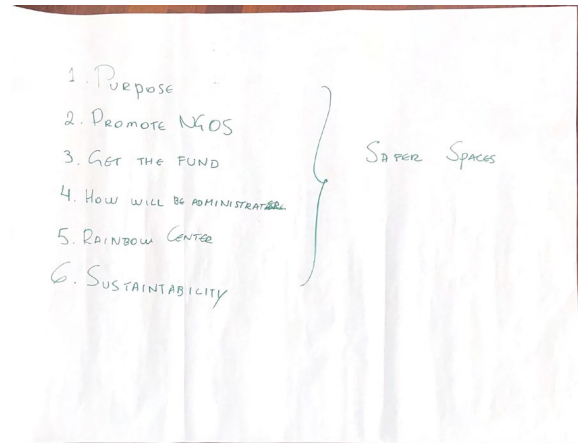 1. Purpose
2. Promote NGOS
3. Get the fund
4. How will be administrated
5. Rainbow Center
6. Sustaintability
Safer Spaces